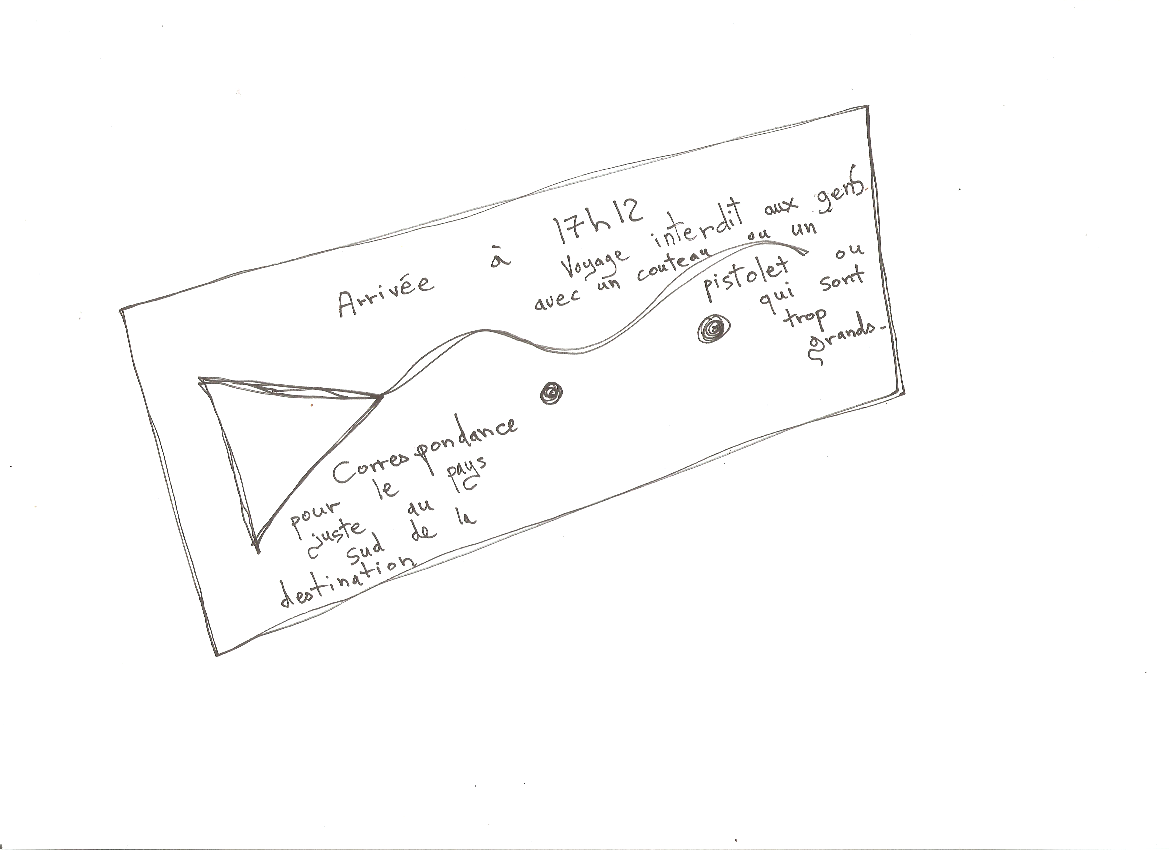 Arrivée à 17h12
Voyage interdit aux gens
avec un couteau ou un
pistolet ou
qui sont
trop
grands.
Correspondance
pour le pays
juste au
sud de la
destination